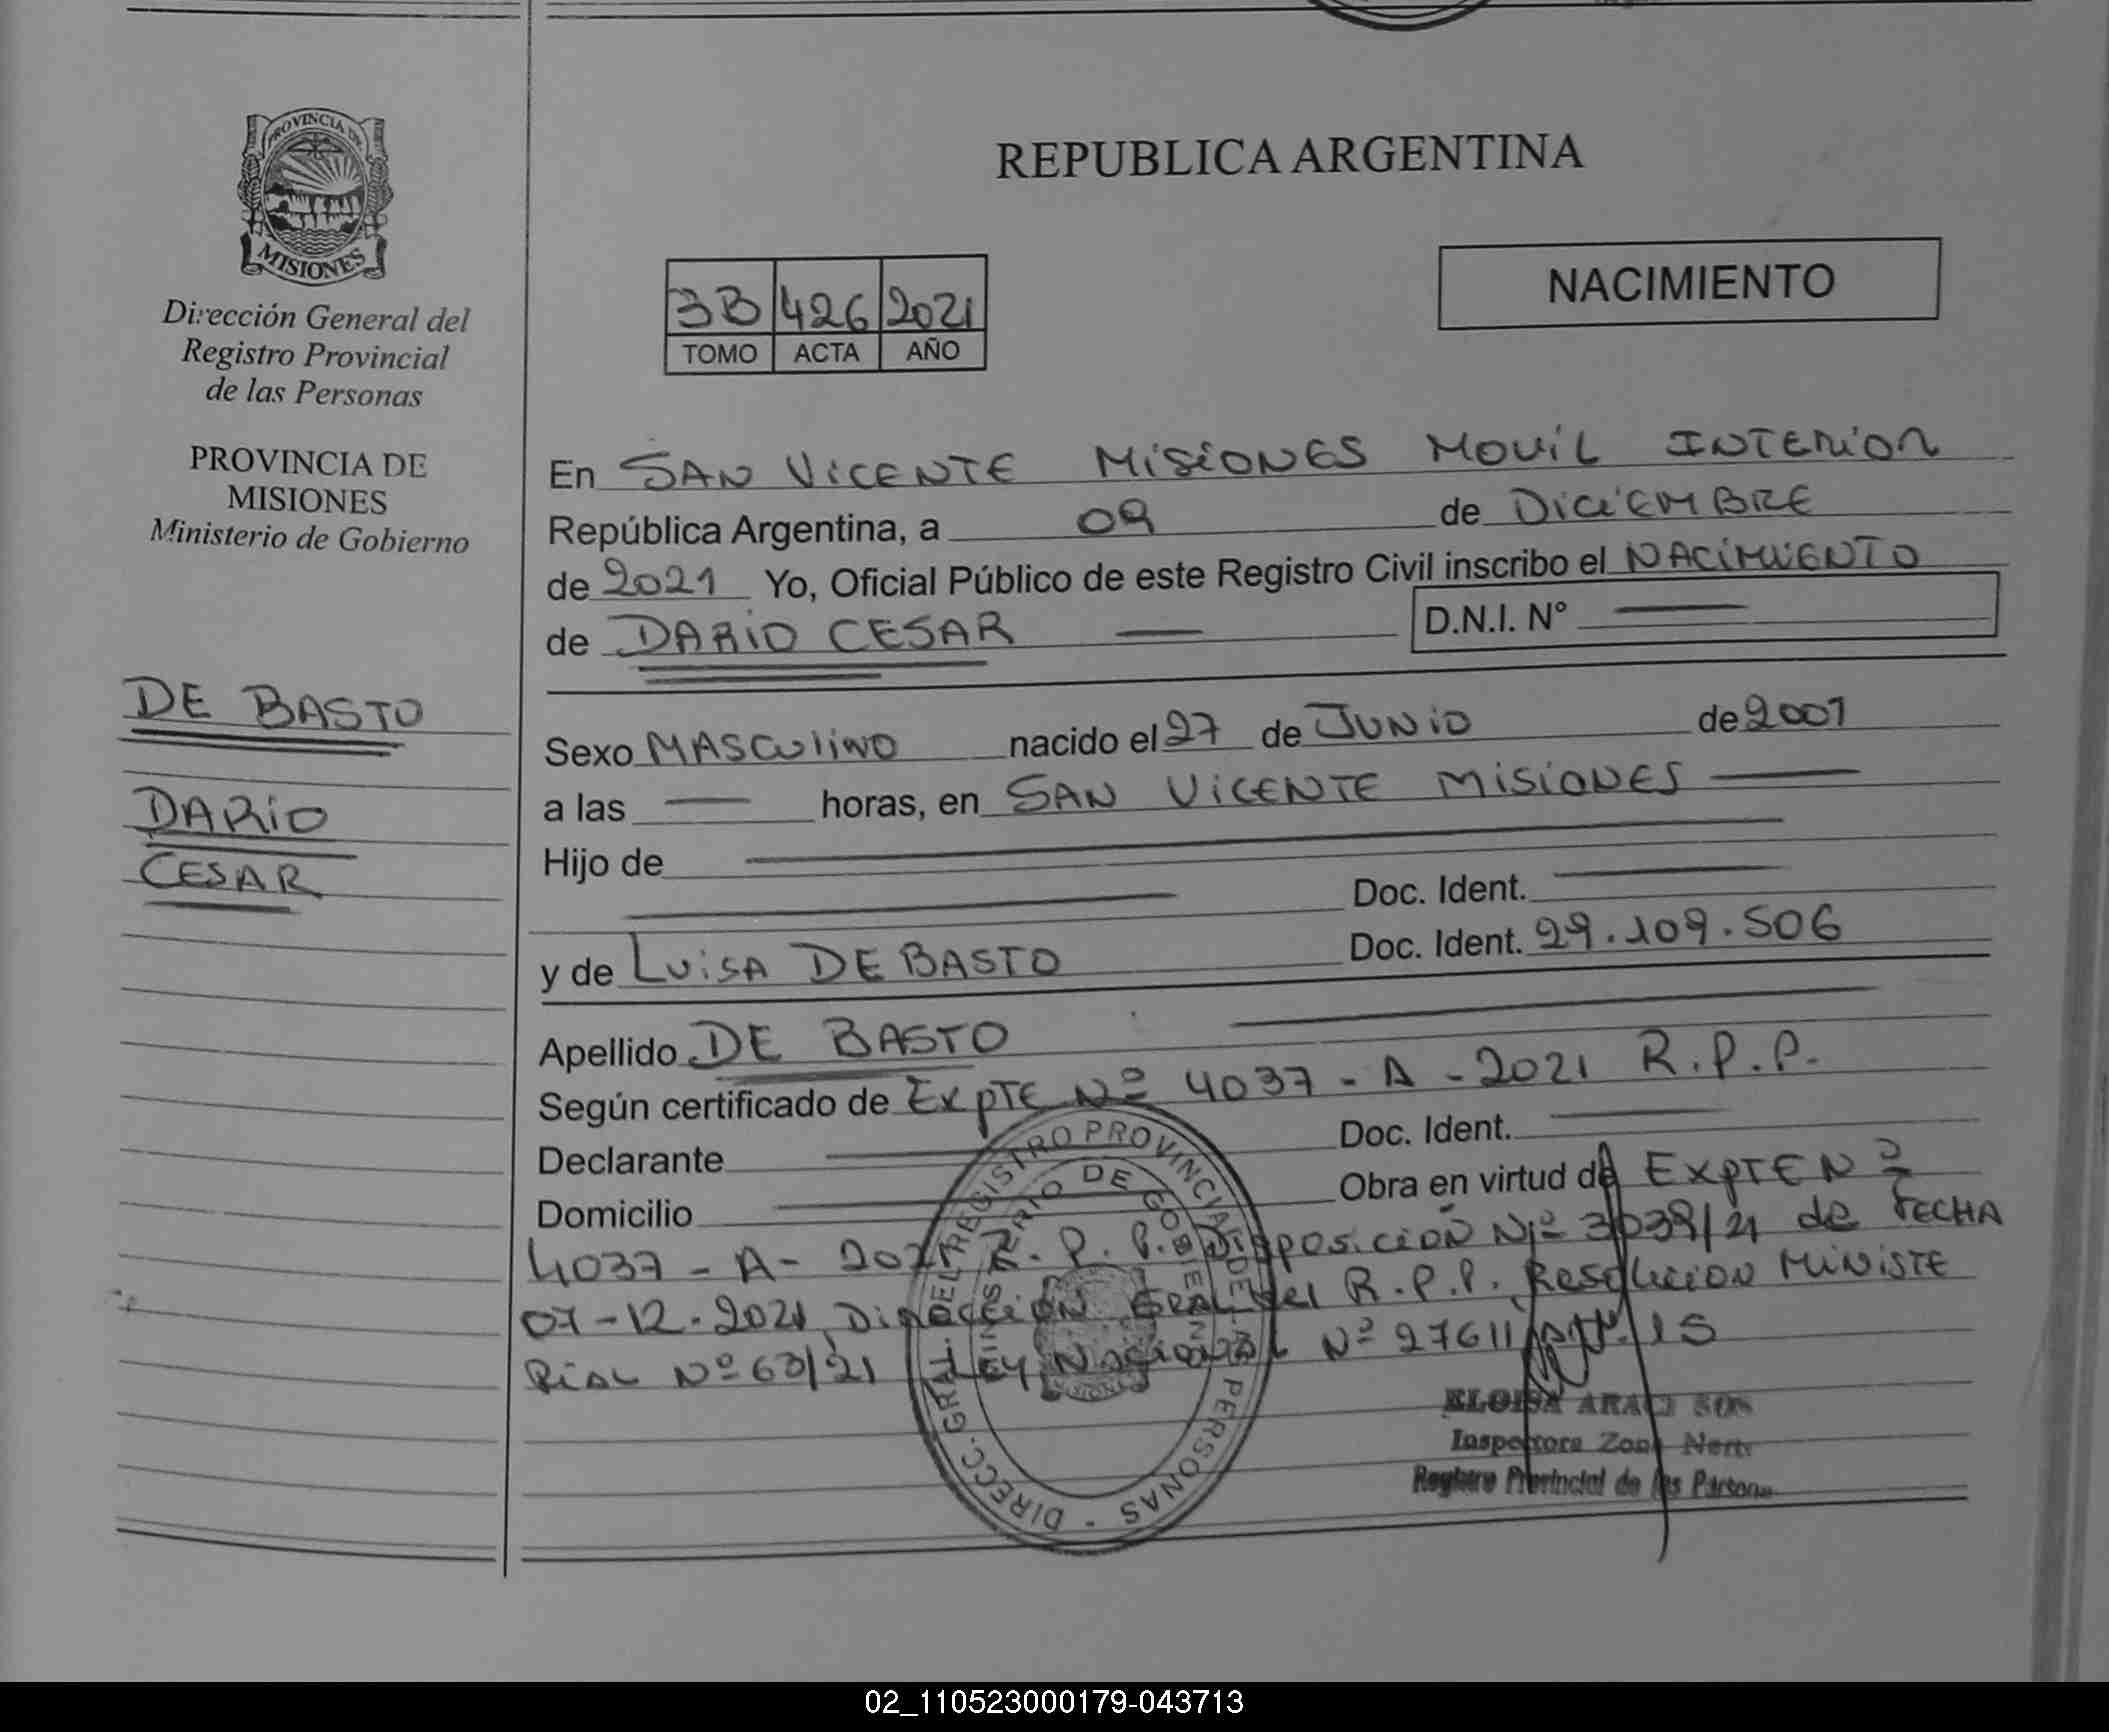 PROVINCIA DE
MISIONES
Dirección General del
Registro Provincial
de las Personas
PROVINCIA DE
MISIONES
Ministerio de Gobierno
DE BASTO
DARIO
CESAR
REPUBLICA ARGENTINA
3B 426 2021
TOMO ACTA AÑO
NACIMIENTO
En SAN VICENTE MISIONES MOVIL INTERIOR
República Argentina, a 09 de DICIEMBRE
de 2021 Yo, Oficial Público de este Registro Civil inscribo el NACIMIENTO
de DARIO CESAR — D.N.I. N° —
Sexo MASCULINO nacido el 27 de JUNIO de 2001
a las — horas, en SAN VICENTE MISIONES —
Hijo de —
Doc. Ident. —
y de LUISA DE BASTO Doc. Ident. 29.109.506
Apellido DE BASTO —
Según certificado de EXPTE Nº 4037 - A - 2021 R.P.P.
Declarante — Doc. Ident. —
Domicilio — Obra en virtud de EXPTE Nº
4037 - A - 2021 R.P.P. Disposición Nº 3039/21 de FECHA
07-12-2021, Dirección GRAL del R.P.P. Resolucion MINISTE
RIAL Nº 63/21 LEY Nacional Nº 27611
DIRECC. GRAL. DEL REGISTRO PROVINCIAL DE LAS PERSONAS -
MINISTERIO DE GOBIERNO
MISIONES
ELOISA
Inspectora Zona Norte
Registro Provincial de las Persona
02_110523000179-043713